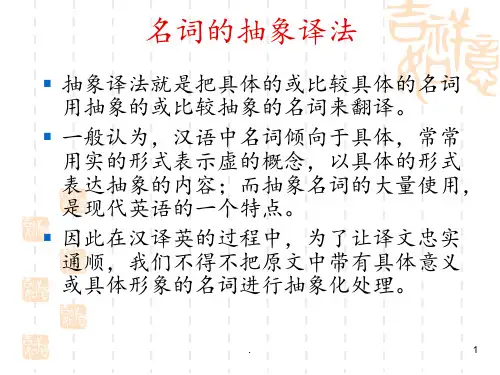 名词的抽象译法
抽象译法就是把具体的或比较具体的名词
用抽象的或比较抽象的名词来翻译。
一般认为，汉语中名词倾向于具体，常常
用实的形式表示虚的概念，以具体的形式
表达抽象的内容；而抽象名词的大量使用，
是现代英语的一个特点。
因此在汉译英的过程中，为了让译文忠实
通顺，我们不得不把原文中带有具体意义
或具体形象的名词进行抽象化处理。
.
1